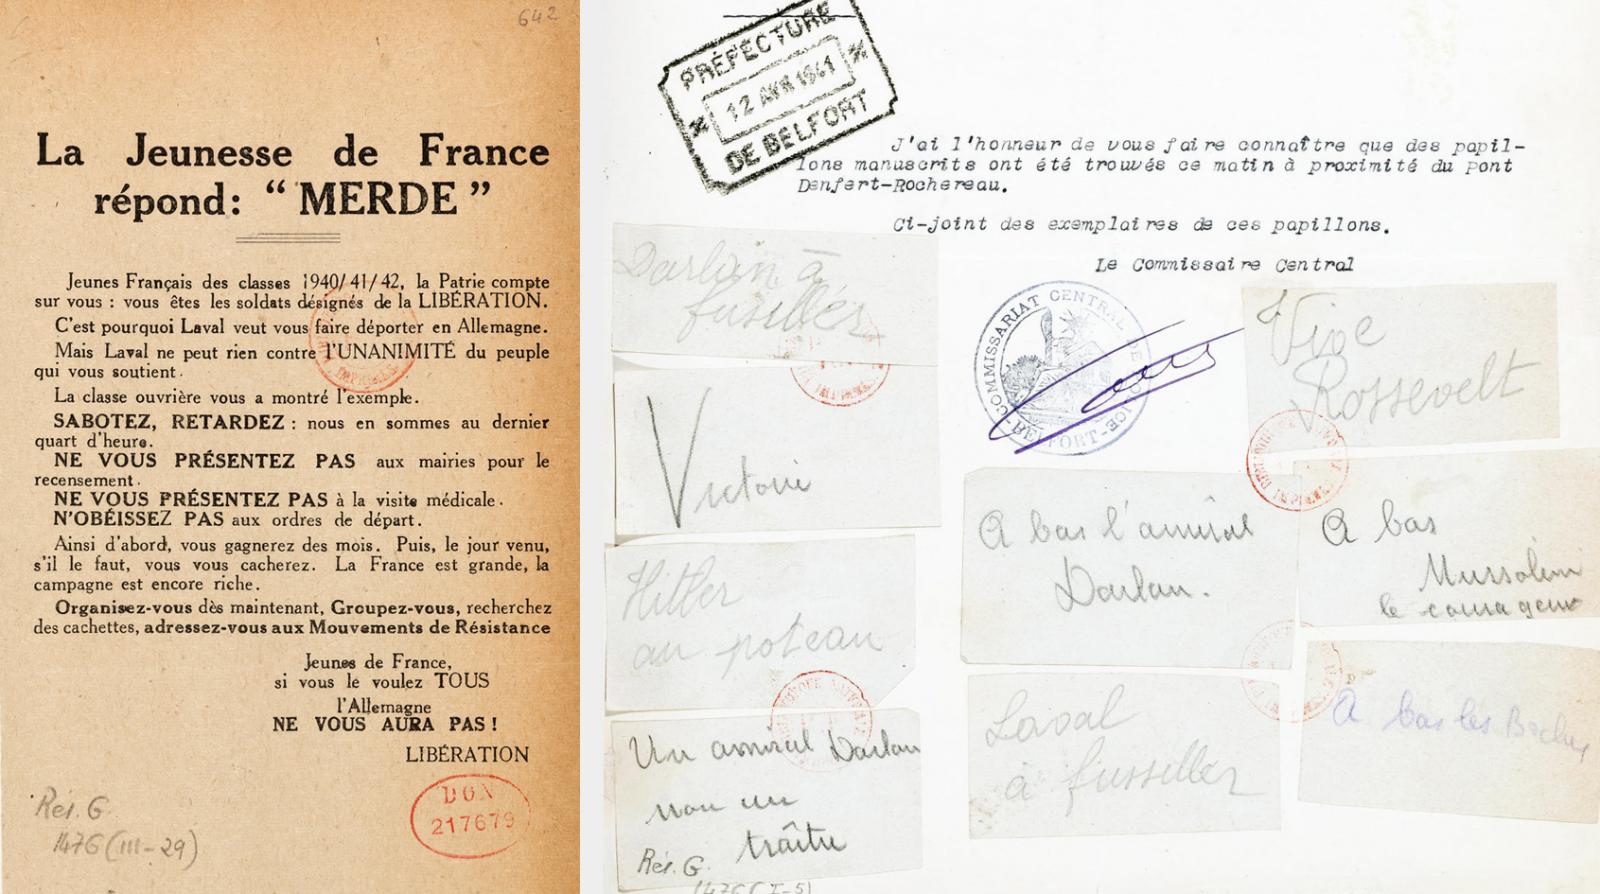 642
La Jeunesse de France
répond: “ MERDE ”
Jeunes Français des classes 1940/41/42, la Patrie compte
sur vous : vous êtes les soldats désignés de la LIBÉRATION.
C'est pourquoi Laval veut vous faire déporter en Allemagne.
Mais Laval ne peut rien contre l'UNANIMITÉ du peuple
qui vous soutient.
La classe ouvrière vous a montré l'exemple.
SABOTEZ, RETARDEZ : nous en sommes au dernier
quart d'heure.
NE VOUS PRÉSENTEZ PAS aux mairies pour le
recensement.
NE VOUS PRÉSENTEZ PAS à la visite médicale.
N'OBÉISSEZ PAS aux ordres de départ.
Ainsi d'abord, vous gagnerez des mois. Puis, le jour venu,
s'il le faut, vous vous cacherez. La France est grande, la
campagne est encore riche.
Organisez-vous dès maintenant, Groupez-vous, recherchez
des cachettes, adressez-vous aux Mouvements de Résistance
Jeunes de France,
si vous le voulez TOUS
l'Allemagne
NE VOUS AURA PAS !
LIBÉRATION
DON
217679
Rés. G.
1476 (III-29)
PRÉFECTURE
12 AVR 1941
DE BELFORT
J'ai l'honneur de vous faire connaître que des papil-
lons manuscrits ont été trouvés ce matin à proximité du pont
Denfert-Rochereau.
Ci-joint des exemplaires de ces papillons.
Le Commissaire Central
COMMISSARIAT CENTRAL DE POLICE
-BELFORT-
Darlan à
fusiller
Victoire
Hitler
au poteau
Un amiral Darlan
non un
traître
Rés. G.
1476 (I-5)
Vive
Rossevelt
A bas l'amiral
Darlan.
A bas
Mussolini
le courageux
Laval
à fussiller
A bas les Boches